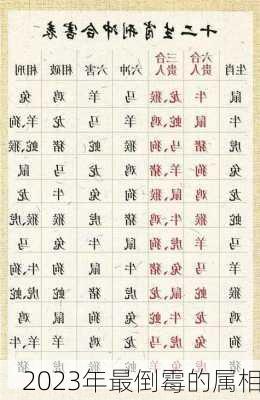 十二生肖刑冲合害表
生肖 六合贵人 三合贵人 六冲 六害 相破 相刑
鼠 牛 龙,猴 马 羊 鸡 兔
牛 鼠 蛇,鸡 羊 马 龙 羊,狗
虎 猪 马,狗 猴 蛇 猪,蛇 蛇,猴
兔 狗 羊,猪 鸡 龙 马 鼠
龙 鸡 鼠,猴 狗 兔 牛 龙
蛇 猴 牛,鸡 猪 虎 猴,虎 猴,虎
马 羊 虎,狗 鼠 牛 兔 马
羊 马 兔,猪 牛 鼠 狗 狗,牛
猴 蛇 鼠,龙 虎 猪 蛇,虎 蛇,虎
鸡 龙 牛,蛇 兔 狗 鼠 鸡
狗 兔 虎,马 龙 鸡 羊 牛,羊
2023年最倒霉的属相